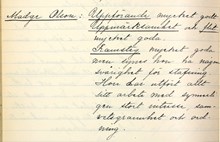 Madge Olson: Uppförande mycket god.
Uppmärksamhet och flit
mycket goda.
Framsteg mycket goda
men synes hon ha någon
svårighet för stafning
Hon har alltid allt
sitt arbete med synner-
gen stort intresse sam
noggrannhet och ord
ning.